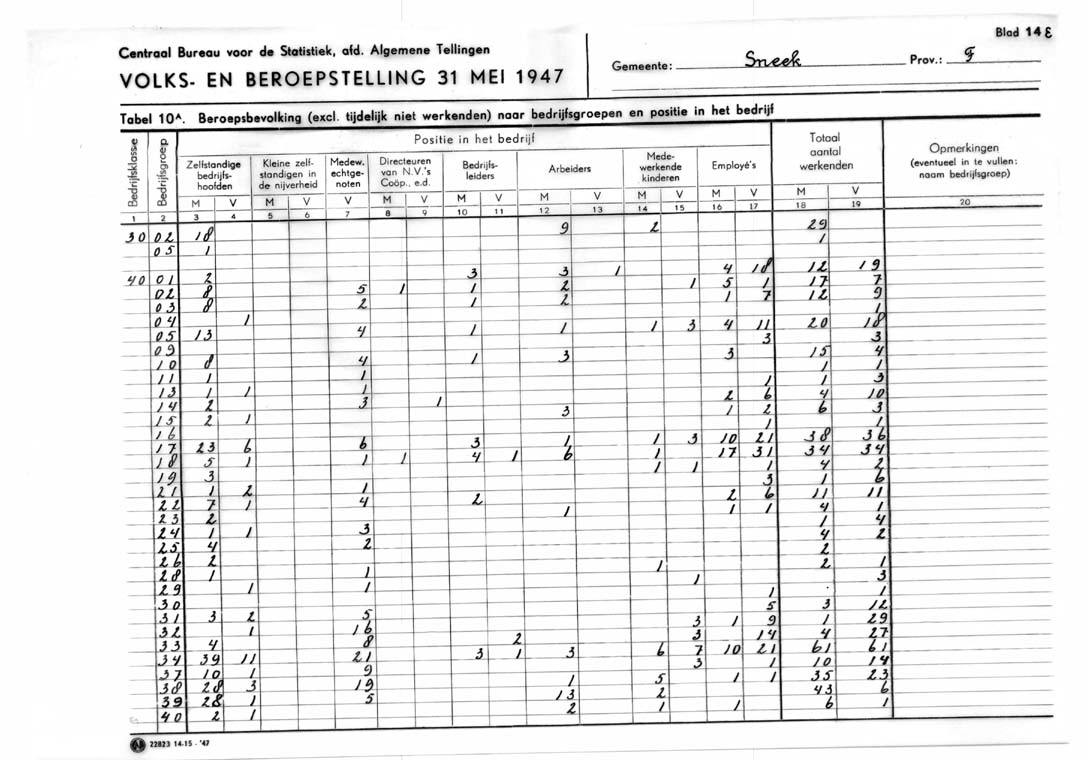 Blad 14 E
Centraal Bureau voor de Statistiek, afd. Algemene Tellingen
VOLKS- EN BEROEPSTELLING 31 MEI 1947
Gemeente: Sneek Prov.: F
Tabel 10A. Beroepsbevolking (excl. tijdelijk niet werkenden) naar bedrijfsgroepen en positie in het bedrijf
Bedrijfsklasse Bedrijfsgroep Positie in het bedrijf Totaal aantal werkenden Opmerkingen (eventueel in te vullen: naam bedrijfsgroep)
Zelfstandige bedrijfshoofden Kleine zelfstandigen in de nijverheid Medew. echtgenoten Directeuren van N.V.'s Coöp., e.d. Bedrijfsleiders Arbeiders Medewerkende kinderen Employé's
M V M V V M V M V M V M V M V M V
1 2 3 4 5 6 7 8 9 10 11 12 13 14 15 16 17 18 19 20
30 02 18 9 2 29
05 1 1
40 01 2 3 3 1 4 18 12 19
02 8 5 1 1 2 1 5 1 17 7
03 8 2 1 2 1 7 12 9
04 1 1
05 13 4 1 1 1 3 4 11 20 18
09 3 3
10 8 4 1 3 3 15 4
11 1 1 1 1
13 1 1 1 1 1 3
14 2 3 1 2 6 4 10
15 2 1 3 1 2 6 3
16 1 1
17 23 6 6 3 1 1 3 10 21 38 36
18 5 1 1 1 4 1 6 1 17 31 34 34
19 3 1 1 1 4 2
21 1 2 1 3 1 6
22 7 1 4 2 2 6 11 11
23 2 1 1 1 4 1
24 1 1 3 1 4
25 4 2 4 2
26 2 2
28 1 1 1 2 1
29 1 1 1 3
30 1 1
31 3 2 5 5 3 12
32 1 16 3 1 9 1 29
33 4 8 2 3 14 4 27
34 39 11 21 3 1 3 6 7 10 21 61 61
37 10 1 9 3 1 10 14
38 28 3 19 1 5 1 1 35 23
39 28 1 5 13 2 43 6
40 2 1 2 1 1 6 1
22823 14-15 - '47